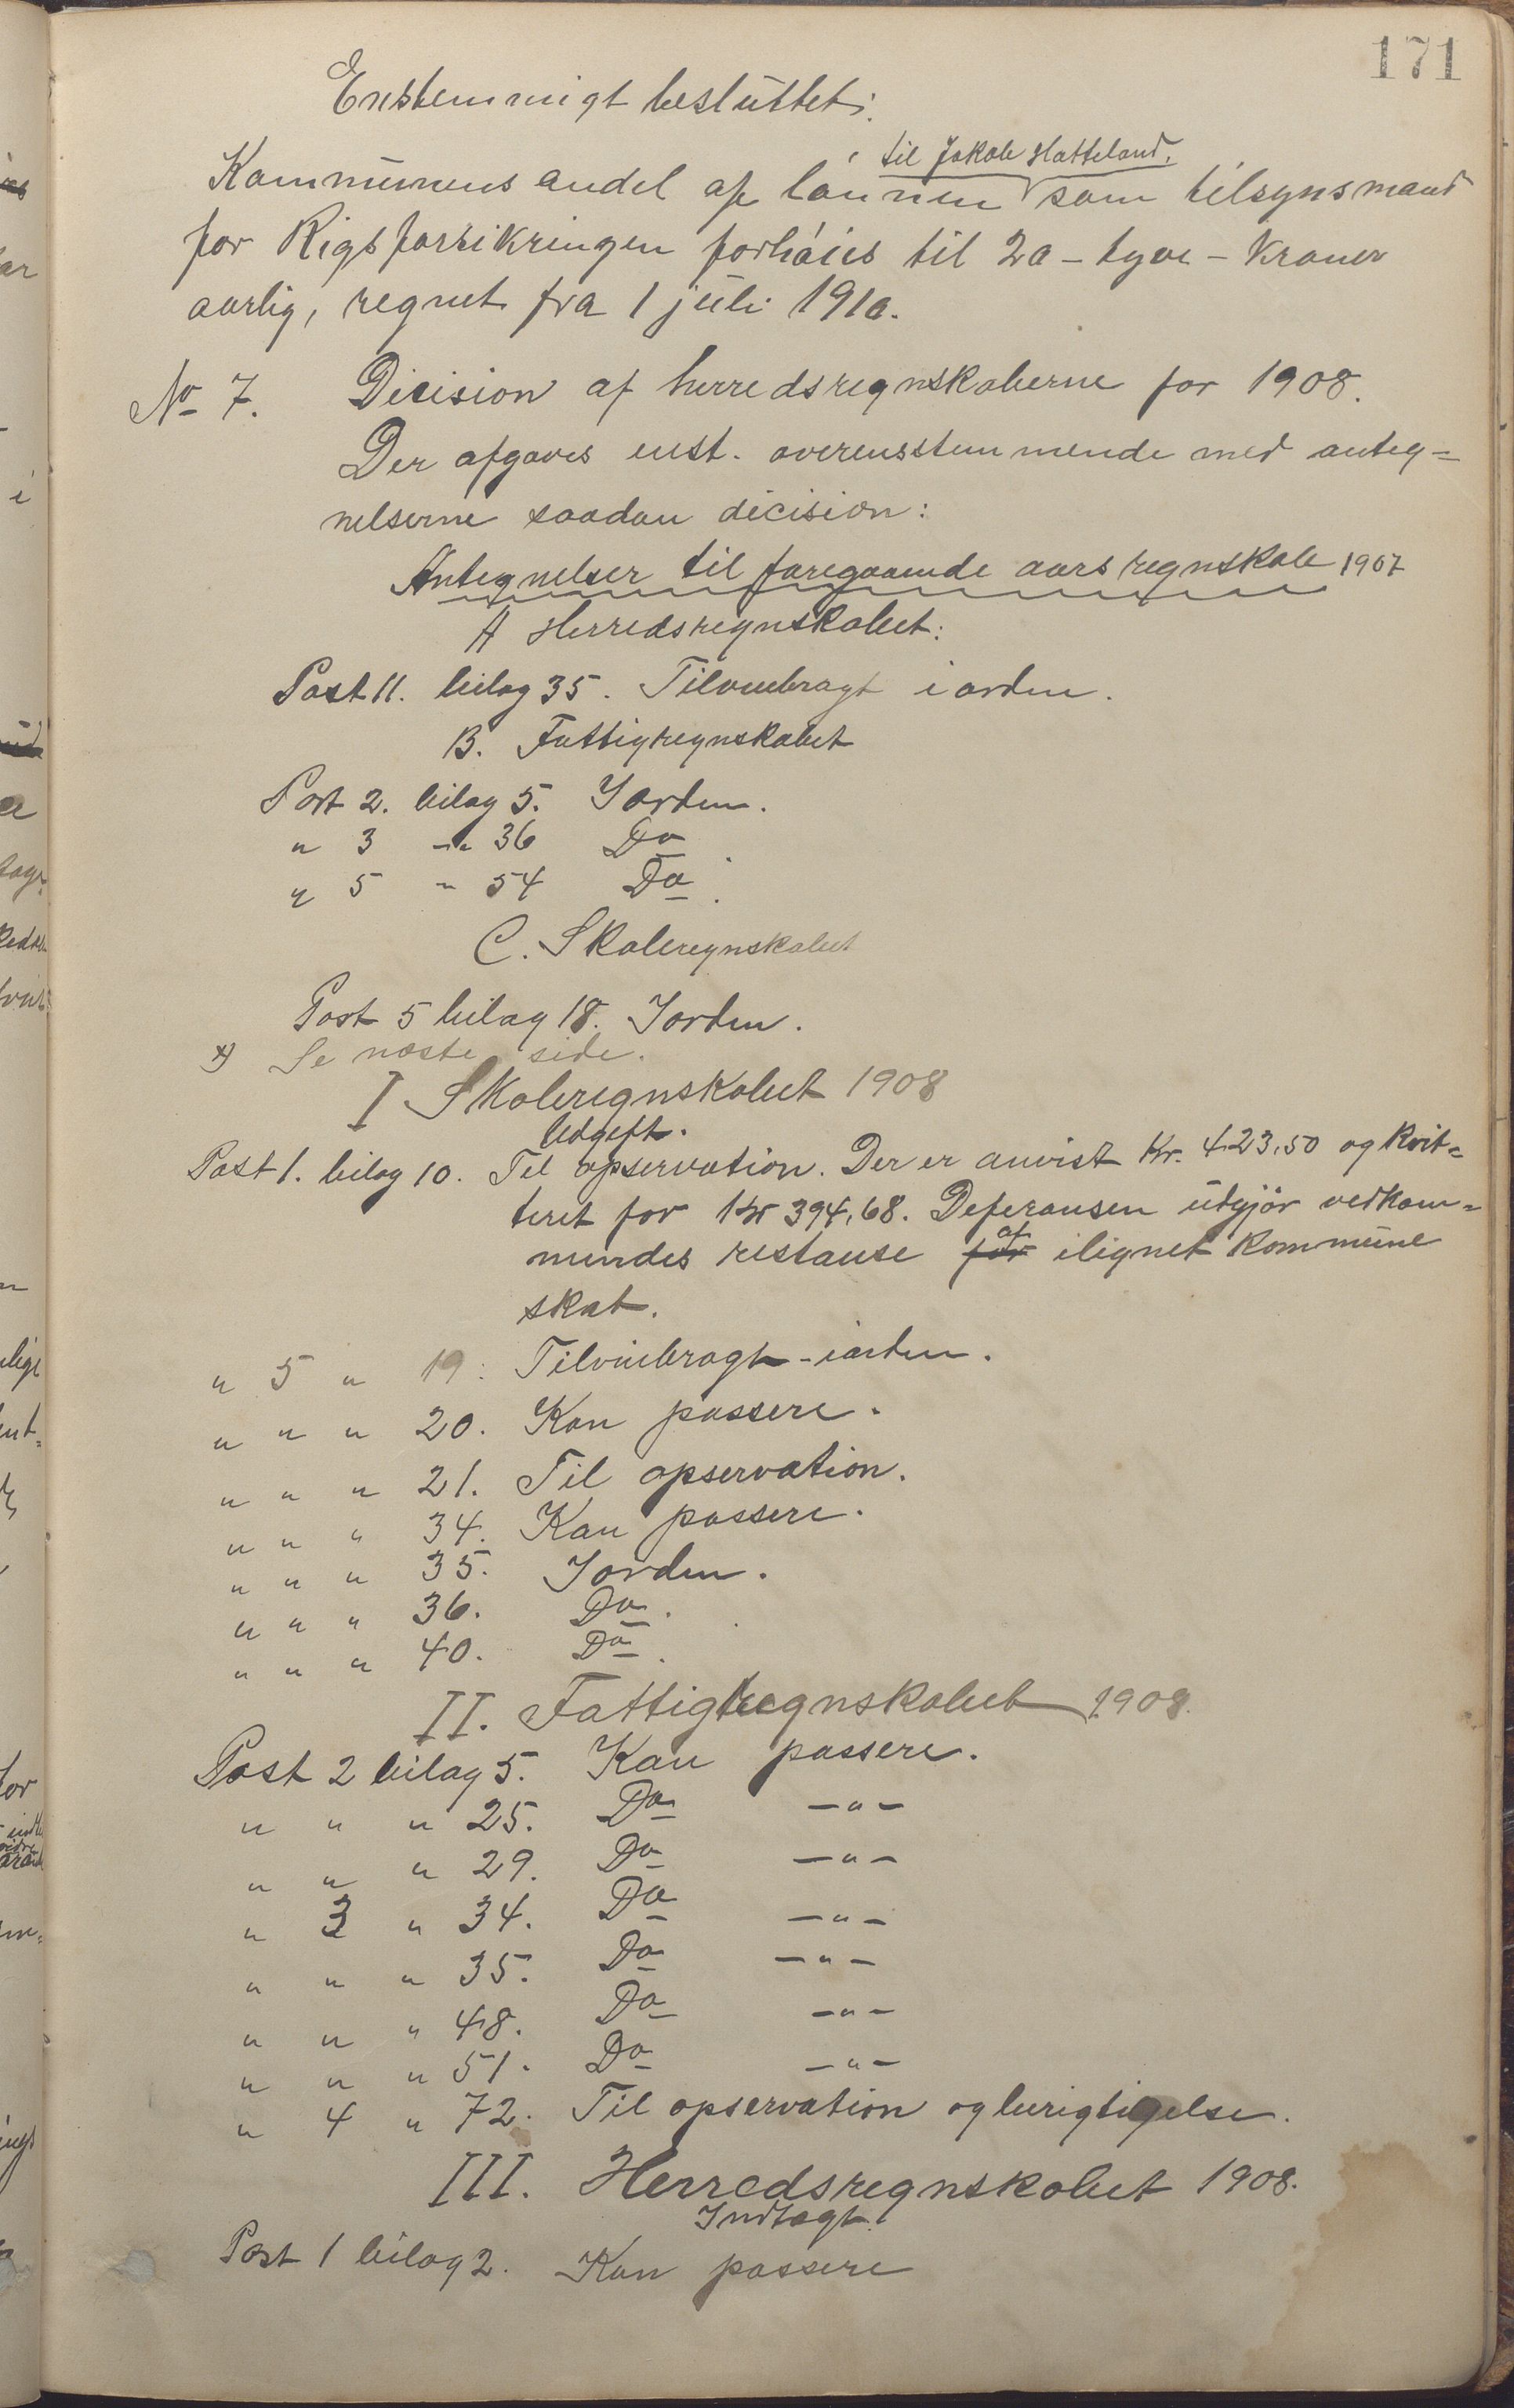 171
Enstemmigt besluttet:
til Jakob Hatteland.
Kommunens andel af lønnen som tilsynsmand
for Rigsforsikringen forhøies til 20 - tyve - Kroner
aarlig, regnet fra 1 juli 1910.
No 7. Dicision af herredsregnskaberne for 1908.
Der afgaves enst. overensstemmende med anteg=
nelserne saadan dicision:
Antegnelser til foregaaende aars regnskab 1907
A Herredsregnskabet:
Post 11. bilag 35. Tilveiebragt i orden.
B. Fattigregnskabet
Post 2. bilag 5. I orden.
" 3 -"- 36 Do
" 5 " 54 Do.
C. Skoleregnskabet
Post 5 bilag 18. I orden.
x) Se næste side.
I Skoleregnskabet 1908
Udgift.
Post 1. bilag 10. Til opservation. Der er anvist Kr. 423,50 og kvit=
terit for Kr 394,68. Deferansen udgjør vedkom=
mendes restanse for af ilignet kommune
skat.
" 5 " 19. Tilveiebragt - iorden.
" " " 20. Kan passere.
" " " 21. Til opservation.
" " " 34. Kan passere.
" " " 35. I orden.
" " " 36. Do.
" " " 40. Do.
II. Fattigregnskabet 1908.
Post 2 bilag 5. Kan passere.
" " " 25. Do -"-
" " " 29. Do -"-
" 3 " 34. Do -"-
" " " 35. Do -"-
" " " 48. Do -"-
" " " 51. Do -"-
" 4 " 72. Til opservation og berigtigelse.
III. Herredsregnskabet 1908.
Indtægt.
Post 1 bilag 2. Kan passere